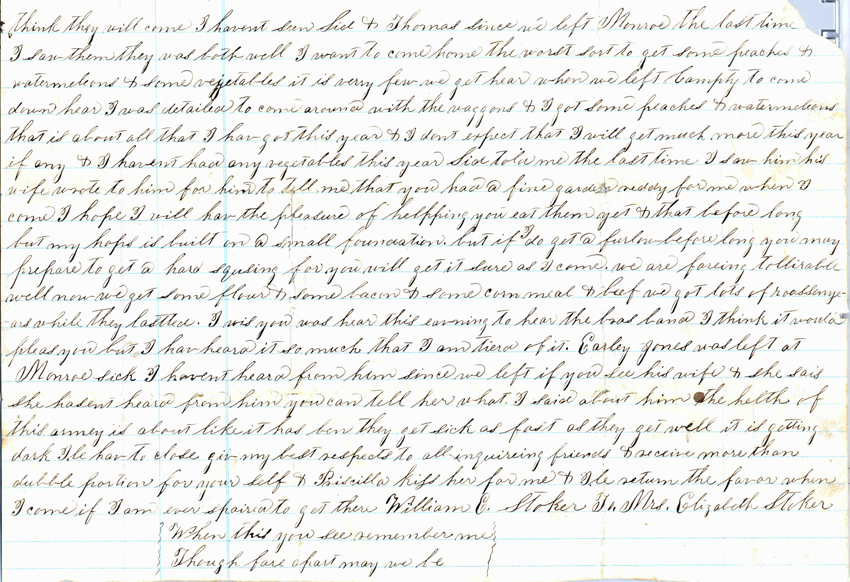 think they will come I havent seen Sid & Thomas since we left Monroe the last time
I saw them they was both well I want to come home the worst sort to get some peaches &
watermelons & some vegetables it is verry few we get hear when we left Campty to come
down hear I was detailed to come around with the waggons & I got some peaches & watermelons
that is about all that I hav got this year & I dont expect that I will get much more this year
if any & I havent had any vegetables this year Sid told me the last time I saw him his
wife wrote to him for him to tell me that you had a fine garden reddy for me when I
come I hope I will hav the pleasure of helpping you eat them yet & that before long
but my hops is built on a small foundation. but if I do get a furlow before long you may
prepare to get a hard squsing for you will get it sure as I come. we are fareing tollirable
well now we get some flour & some bacon & some cornmeal & beef we got lots of roassenye-
ars while they lastted. I wis you was hear this eavning to hear the bras band I think it would
pleas you but I hav heard it so much that I am tierd of it. Earley Jones was left at
Monroe sick I havent heard from him since we left if you see his wife & she sais
she hasent heard from him you can tell her what I said about him the helth of
this army is about like it has ben they get sick as fast as they get well it is getting
dark I,le hav to close giv my best respects to all inquireing friends & receive more than
dubble portion for your self & Priscilla kiss her for me & I,le return the favor when
I come if I am ever spaired to get there William E. Stoker To Mrs. Elizabeth Stoker
When this you see remember me
Though fare apart may we be